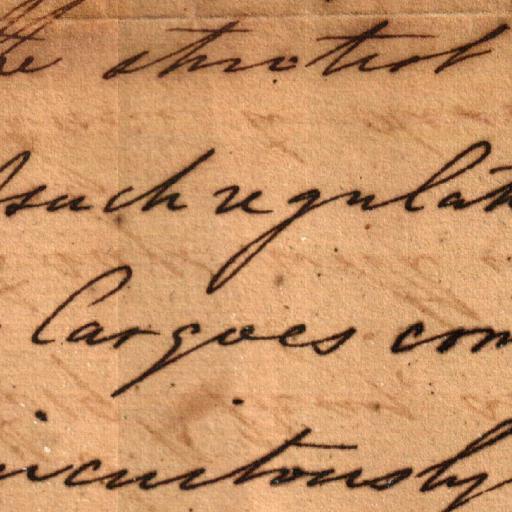 the strictest
such regulat
Cargoes com
uitously